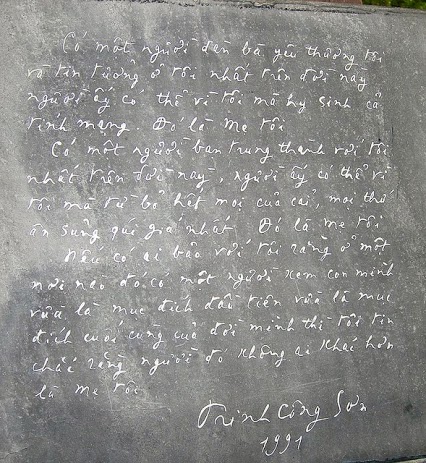 Có một người đàn bà yêu thương tôi
và tin tưởng ở tôi nhất trên đời này
người ấy có thể vì tôi mà hy sinh cả
tính mạng. Đó là Mẹ tôi
Có một người bạn trung thành với tôi
nhất trên đời này, người ấy có thể vì
tôi mà từ bỏ hết mọi của cải, mọi thứ
ân sủng quí giá nhất. Đó là mẹ tôi
Nếu có ai bảo với tôi rằng ở một
nơi nào đó có một người xem con mình
vừa là mục đích đầu tiên vừa là mục
đích cuối cùng của đời mình thì tôi tin
chắc rằng người đó không ai khác hơn
là mẹ tôi
Trịnh Công Sơn
1991